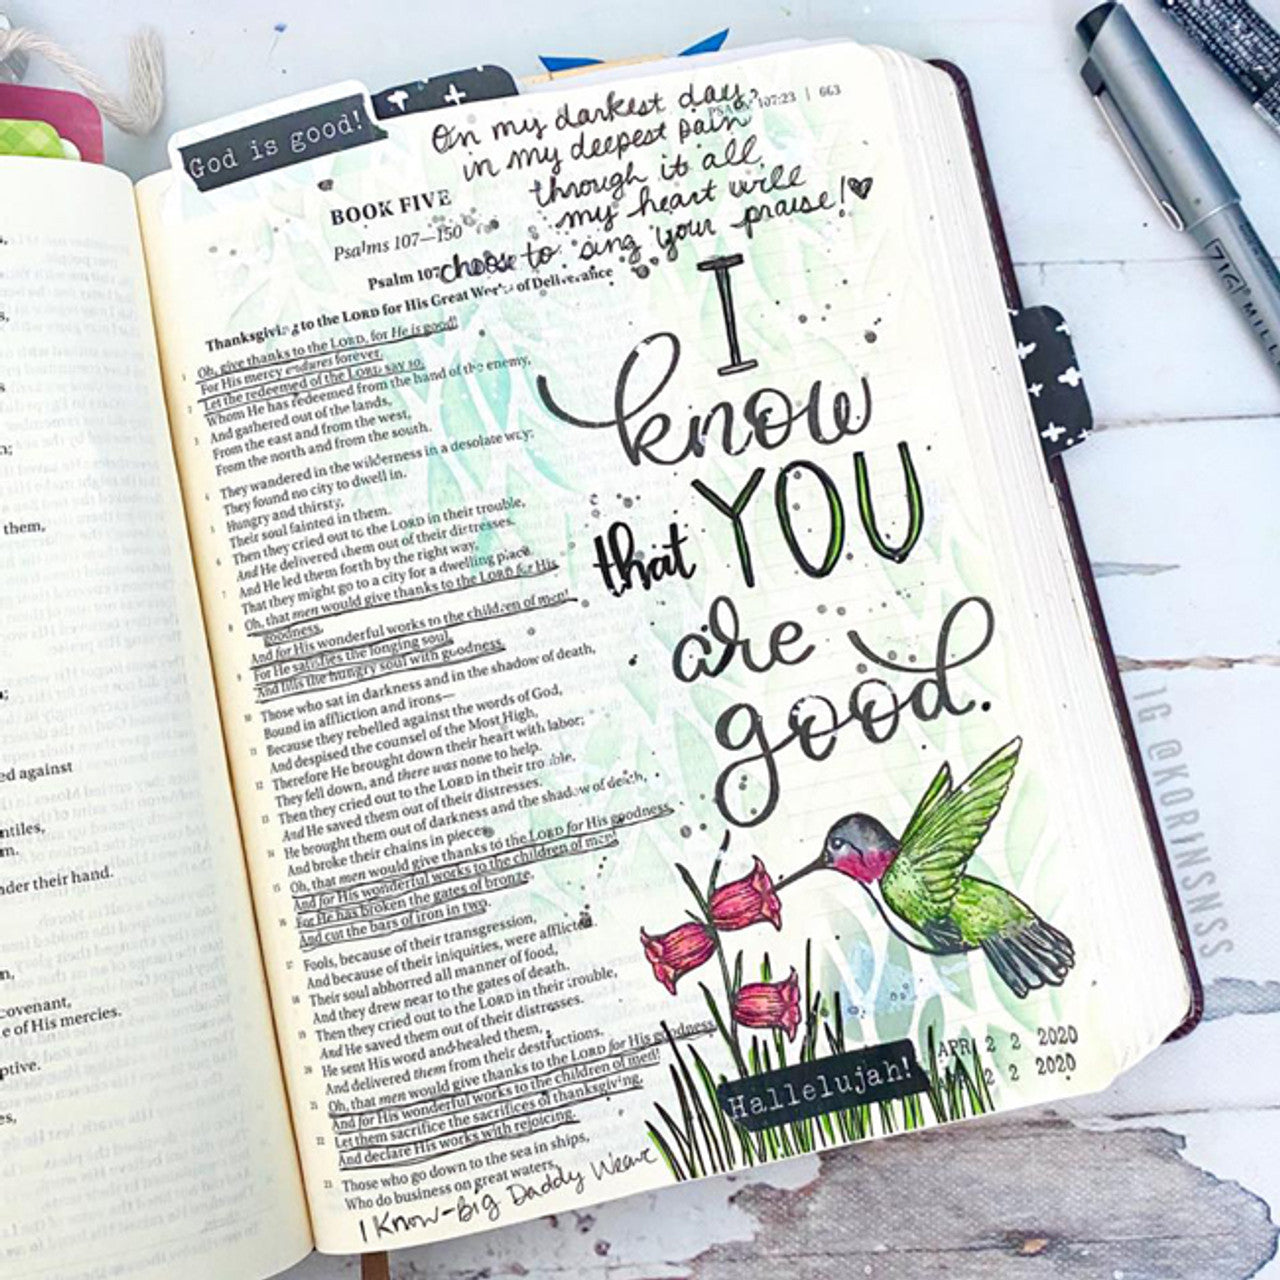 God is good!
PSALM 107:23 | 663
On my darkest day,
in my deepest pain
through it all,
my heart will
choose to sing your praise!
BOOK FIVE
Psalms 107—150
Psalm 107
Thanksgiving to the LORD for His Great Works of Deliverance
1 Oh, give thanks to the LORD, for He is good!
For His mercy endures forever.
2 Let the redeemed of the LORD say so,
Whom He has redeemed from the hand of the enemy,
3 And gathered out of the lands,
From the east and from the west,
From the north and from the south.
4 They wandered in the wilderness in a desolate way;
They found no city to dwell in.
5 Hungry and thirsty,
Their soul fainted in them.
6 Then they cried out to the LORD in their trouble,
And He delivered them out of their distresses.
7 And He led them forth by the right way,
That they might go to a city for a dwelling place.
8 Oh, that men would give thanks to the LORD for His
goodness,
And for His wonderful works to the children of men!
9 For He satisfies the longing soul,
And fills the hungry soul with goodness.
10 Those who sat in darkness and in the shadow of death,
Bound in affliction and irons—
11 Because they rebelled against the words of God,
And despised the counsel of the Most High,
12 Therefore He brought down their heart with labor;
They fell down, and there was none to help.
13 Then they cried out to the LORD in their trouble,
And He saved them out of their distresses.
14 He brought them out of darkness and the shadow of death,
And broke their chains in pieces.
15 Oh, that men would give thanks to the LORD for His goodness,
And for His wonderful works to the children of men!
16 For He has broken the gates of bronze,
And cut the bars of iron in two.
17 Fools, because of their transgression,
And because of their iniquities, were afflicted.
18 Their soul abhorred all manner of food,
And they drew near to the gates of death.
19 Then they cried out to the LORD in their trouble,
And He saved them out of their distresses.
20 He sent His word and healed them,
And delivered them from their destructions.
21 Oh, that men would give thanks to the LORD for His goodness,
And for His wonderful works to the children of men!
22 Let them sacrifice the sacrifices of thanksgiving,
And declare His works with rejoicing.
23 Those who go down to the sea in ships,
Who do business on great waters,
I Know - Big Daddy Weave
I
know
that YOU
are
good.
Hallelujah!
APR 2 2 2020
2 2 2020
them,
ed against
ntiles,
m.
nder their hand.
covenant,
e of His mercies.
ptive.
es,
ZIG MILL
IG @KORNSNSS